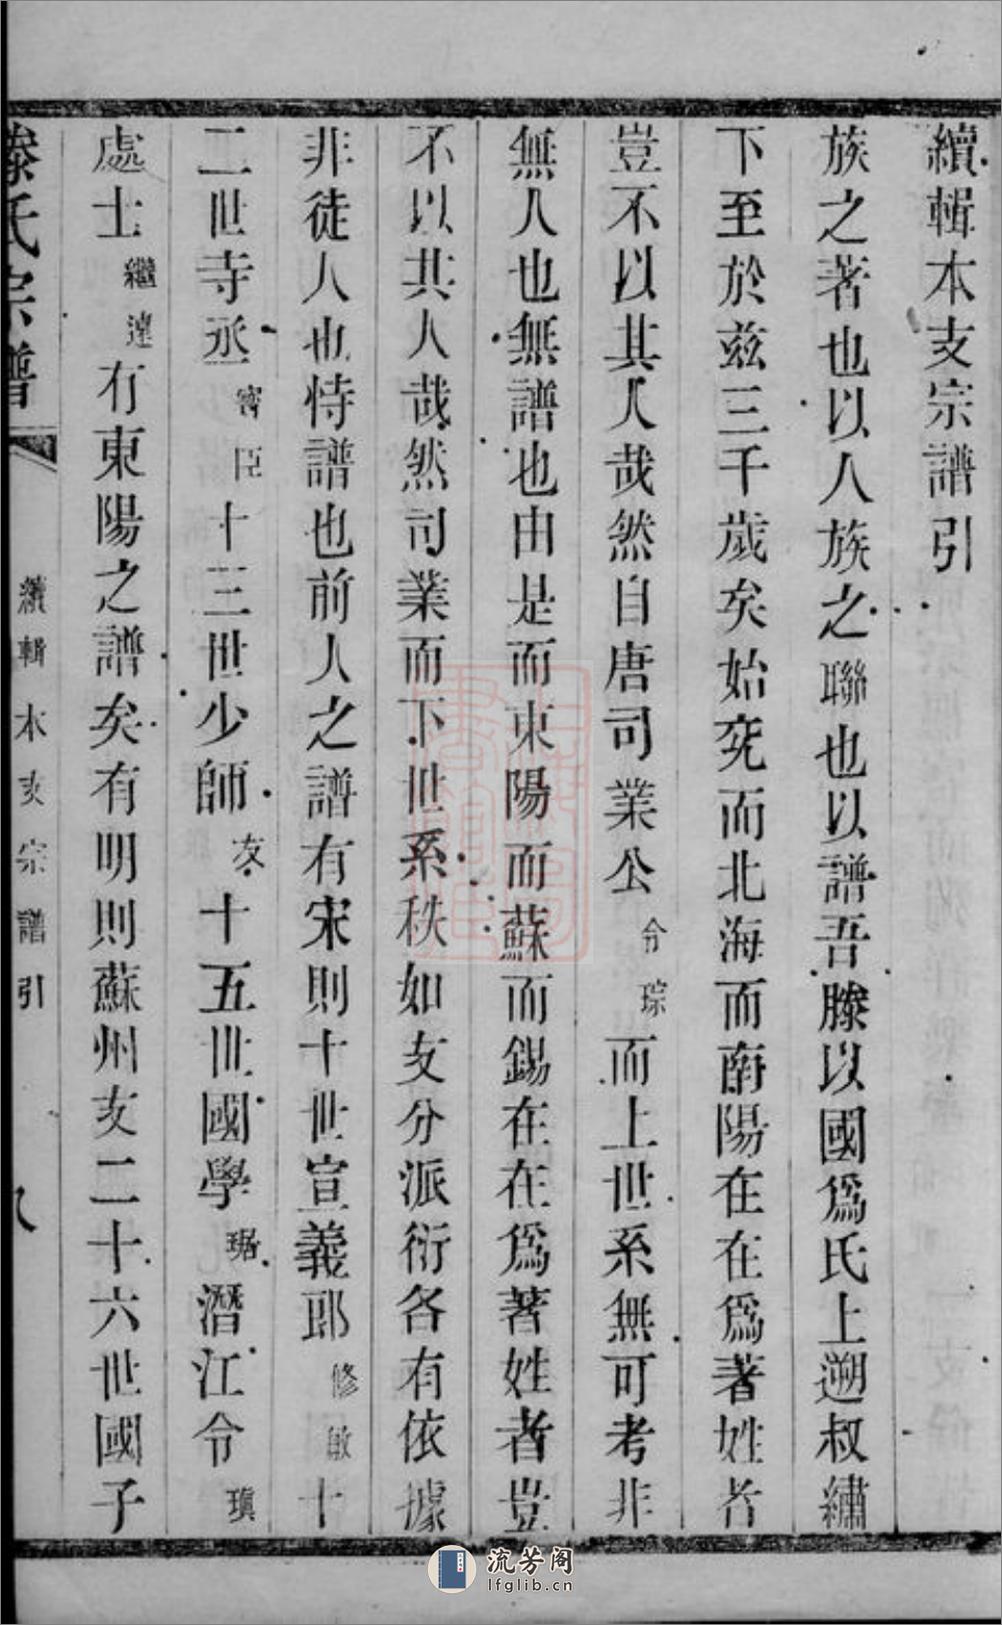 續輯本支宗譜引
族之著也以人族之聯也以譜吾滕以國爲氏上遡叔繡
下至於兹三千歲矣始兖而北海而南陽在在爲著姓者
豈不以其人哉然自唐司業公令琮而上世系無可考非
無人也無譜也由是而東陽而蘇而錫在在爲著姓者豈
不以其人哉然司業而下世系秩如支分派衍各有依據
非徒人也恃譜也前人之譜有宋則十世宣義郎修敏十
二世寺丞賓臣十三世少師友十五世國學琚潛江令瑱
處士繼遠有東陽之譜矣有明則蘇州支二十六世國子
滕氏宗譜
續輯本支宗譜引
八
流芳阁
lfglib.cn